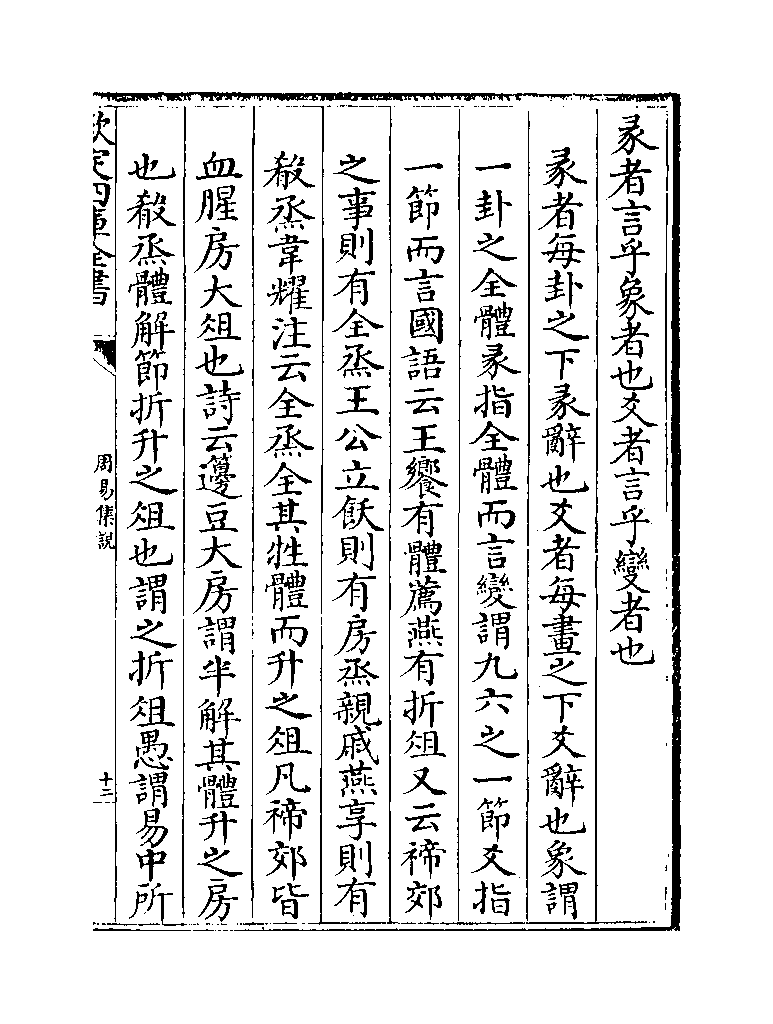 彖者言乎象者也爻者言乎變者也
彖者每卦之下彖辭也爻者每畫之下爻辭也象謂
一卦之全體彖指全體而言變謂九六之一節爻指
一節而言國語云王饗有體薦燕有折俎又云禘郊
之事則有全烝王公立飫則有房烝親戚燕享則有
殽烝韋耀注云全烝全其牲體而升之俎凡禘郊皆
血腥房大俎也詩云籩豆大房謂半解其體升之房
也殽烝體解節折升之俎也謂之折俎愚謂易中所
欽定四庫全書
周易集説
十三